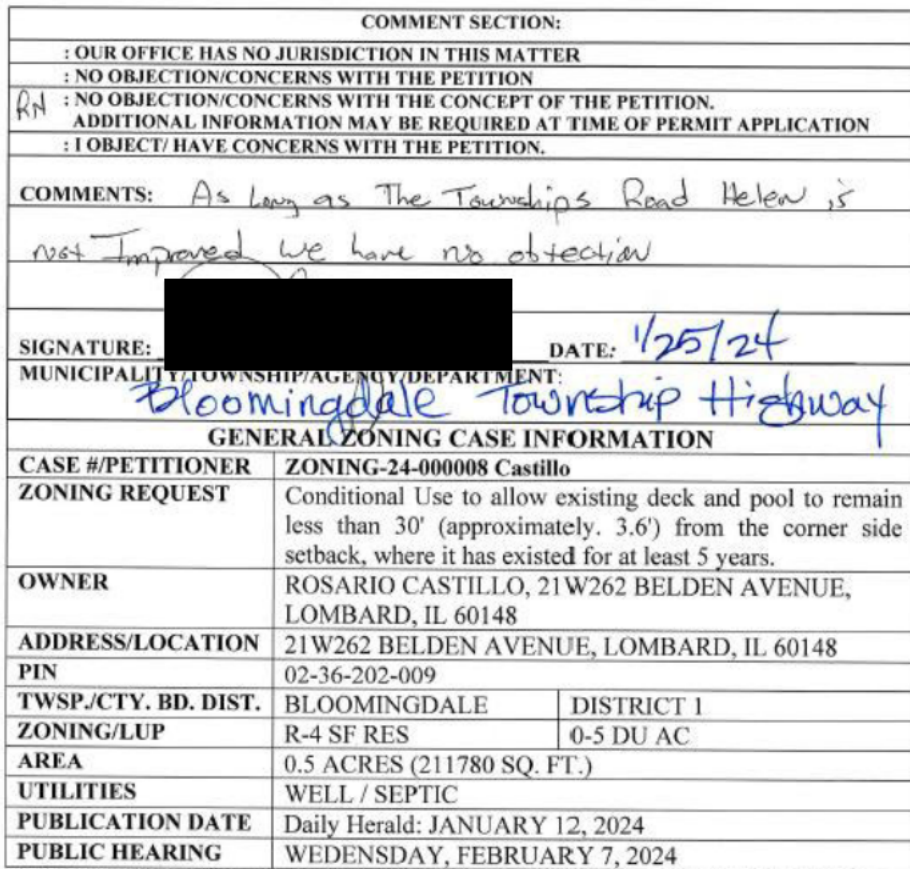 COMMENT SECTION:
: OUR OFFICE HAS NO JURISDICTION IN THIS MATTER
: NO OBJECTION/CONCERNS WITH THE PETITION
RN : NO OBJECTION/CONCERNS WITH THE CONCEPT OF THE PETITION.
ADDITIONAL INFORMATION MAY BE REQUIRED AT TIME OF PERMIT APPLICATION
: I OBJECT/ HAVE CONCERNS WITH THE PETITION.
COMMENTS: As Long as The Townships Road Helen is
not Improved we have no obtection
SIGNATURE: DATE: 1/25/24
MUNICIPALITY/TOWNSHIP/AGENCY/DEPARTMENT:
Bloomingdale Township Highway
GENERAL ZONING CASE INFORMATION
CASE #/PETITIONER ZONING-24-000008 Castillo
ZONING REQUEST Conditional Use to allow existing deck and pool to remain
less than 30' (approximately. 3.6') from the corner side
setback, where it has existed for at least 5 years.
OWNER ROSARIO CASTILLO, 21W262 BELDEN AVENUE,
LOMBARD, IL 60148
ADDRESS/LOCATION 21W262 BELDEN AVENUE, LOMBARD, IL 60148
PIN 02-36-202-009
TWSP./CTY. BD. DIST. BLOOMINGDALE DISTRICT 1
ZONING/LUP R-4 SF RES 0-5 DU AC
AREA 0.5 ACRES (211780 SQ. FT.)
UTILITIES WELL / SEPTIC
PUBLICATION DATE Daily Herald: JANUARY 12, 2024
PUBLIC HEARING WEDENSDAY, FEBRUARY 7, 2024